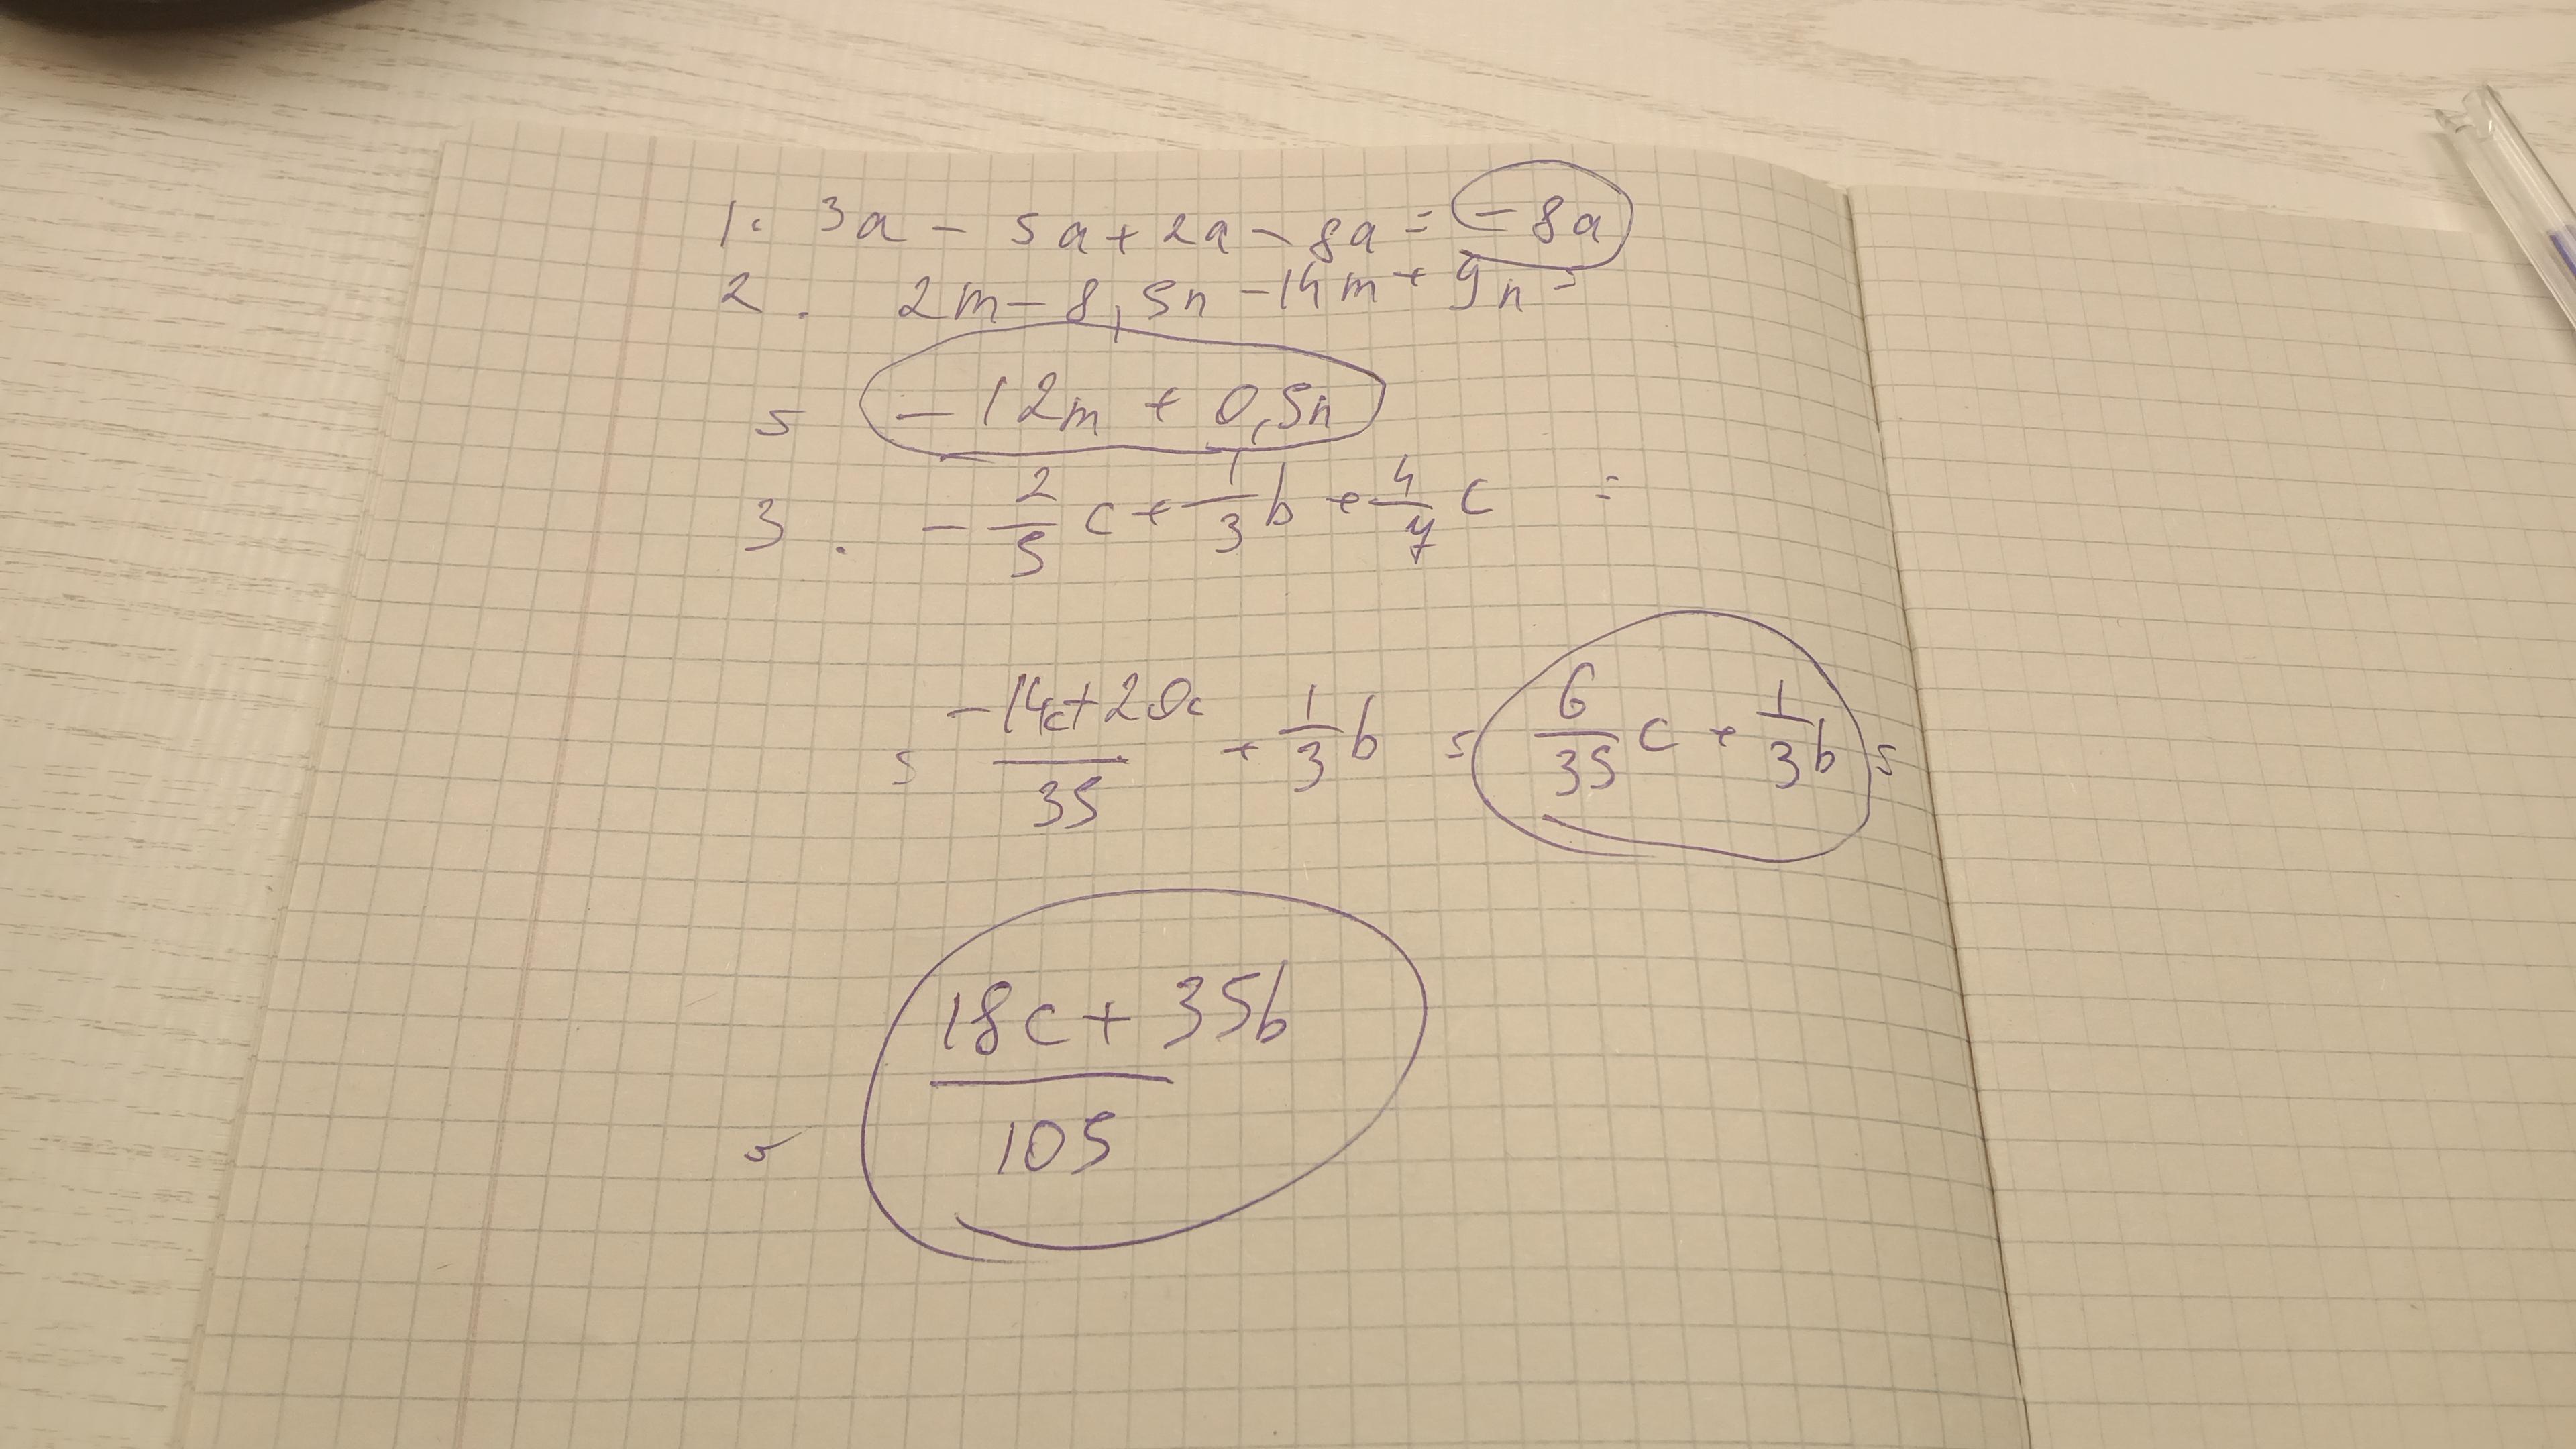 1. 3a - 5a + 2a - 8a = -8a
2. 2m - 8,5n - 14m + 9n =
= -12m + 0,5n
3. -2/5 c + 1/3 b + 4/7 c =
= (-14c + 20c)/35 + 1/3 b = 6/35 c + 1/3 b =
= (18c + 35b)/105